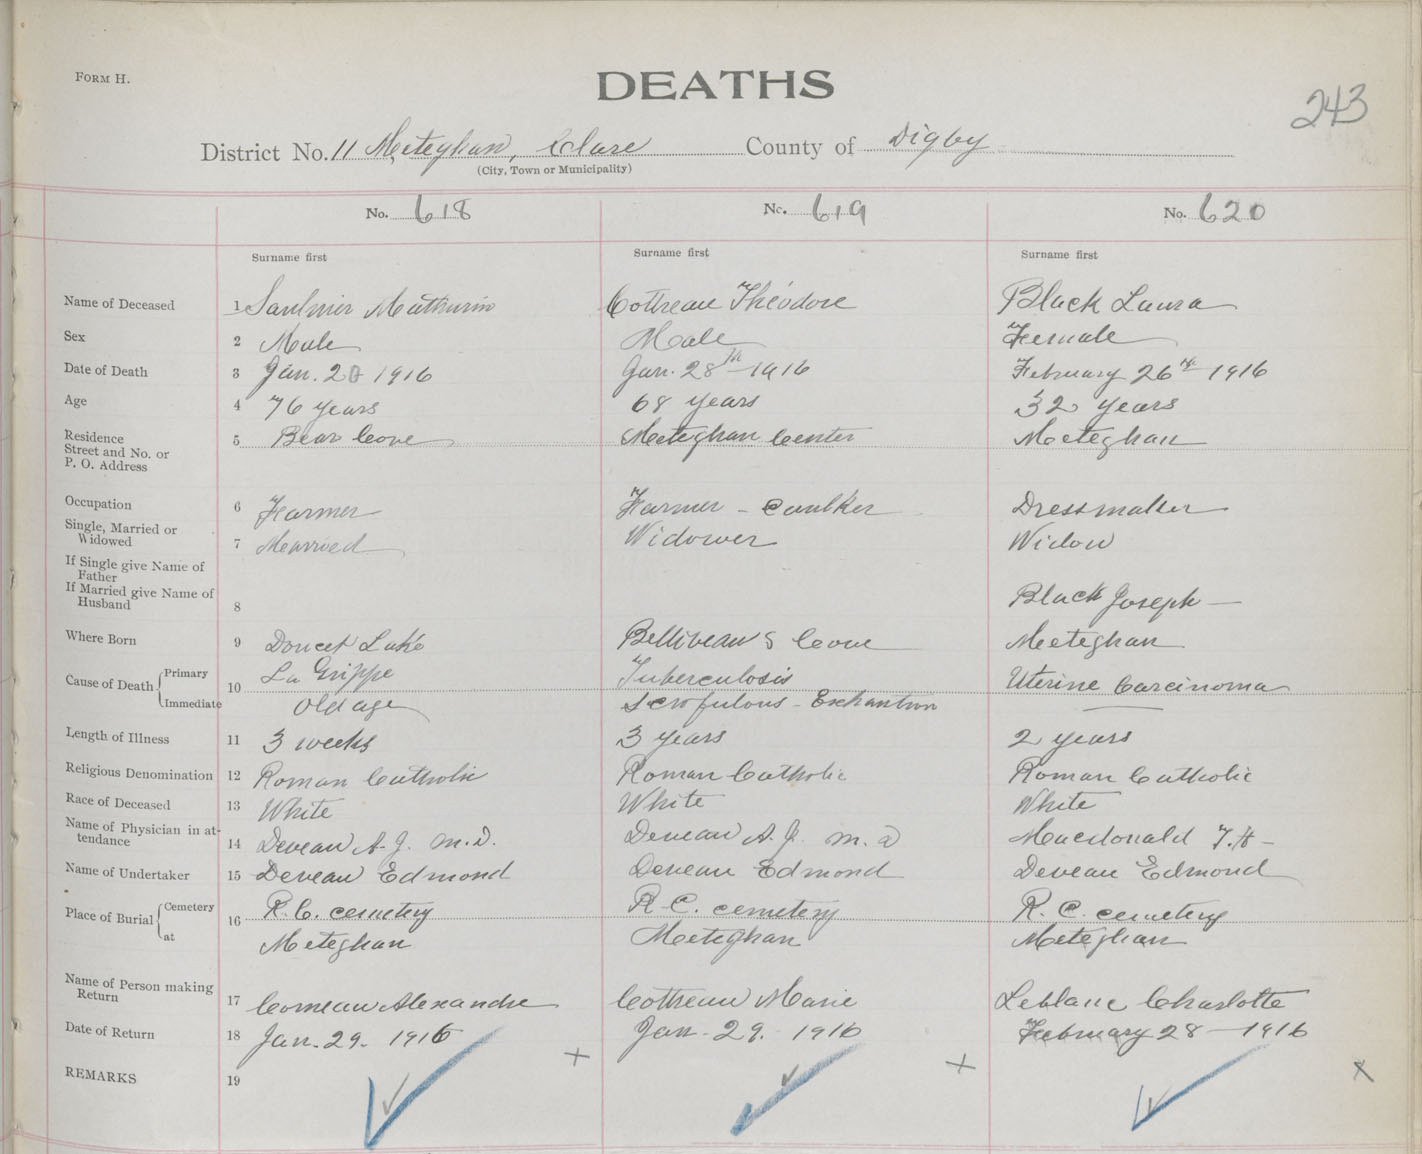 FORM H.
DEATHS
243
District No. 11 Meteghan, Clare County of Digby
(City, Town or Municipality)
No. 618 No. 619 No. 620
Surname first Surname first Surname first
Name of Deceased 1 Saulnier Mathurin Cottreau Théodore Black Laura
Sex 2 Male Male Female
Date of Death 3 Jan. 20 1916 Jan. 28th 1916 February 26th 1916
Age 4 76 years 68 years 32 years
Residence
Street and No. or
P. O. Address
5 Bear Cove Meteghan Center Meteghan
Occupation 6 Farmer Farmer - Caulker Dressmaker
Single, Married or
Widowed
7 Married Widower Widow
If Single give Name of
Father
If Married give Name of
Husband
8 Black Joseph
Where Born 9 Doucet Lake Belliveau's Cove Meteghan
Cause of Death Primary 10 La Grippe Tuberculosis Uterine Carcinoma
Immediate Old age Scrofulous - Exhaustion
Length of Illness 11 3 weeks 3 years 2 years
Religious Denomination 12 Roman Catholic Roman Catholic Roman Catholic
Race of Deceased 13 White White White
Name of Physician in at-
tendance
14 Deveau A. J. M.D. Deveau A. J. M. D Macdonald T. H-
Name of Undertaker 15 Deveau Edmond Deveau Edmond Deveau Edmond
Place of Burial Cemetery 16 R. C. cemetery R. C. cemetery R. C. cemetery
at Meteghan Meteghan Meteghan
Name of Person making
Return
17 Comeau Alexandre Cottreau Marie Leblanc Charlotte
Date of Return 18 Jan. 29. 1916 Jan - 29. 1916 February 28 - 1916
REMARKS 19